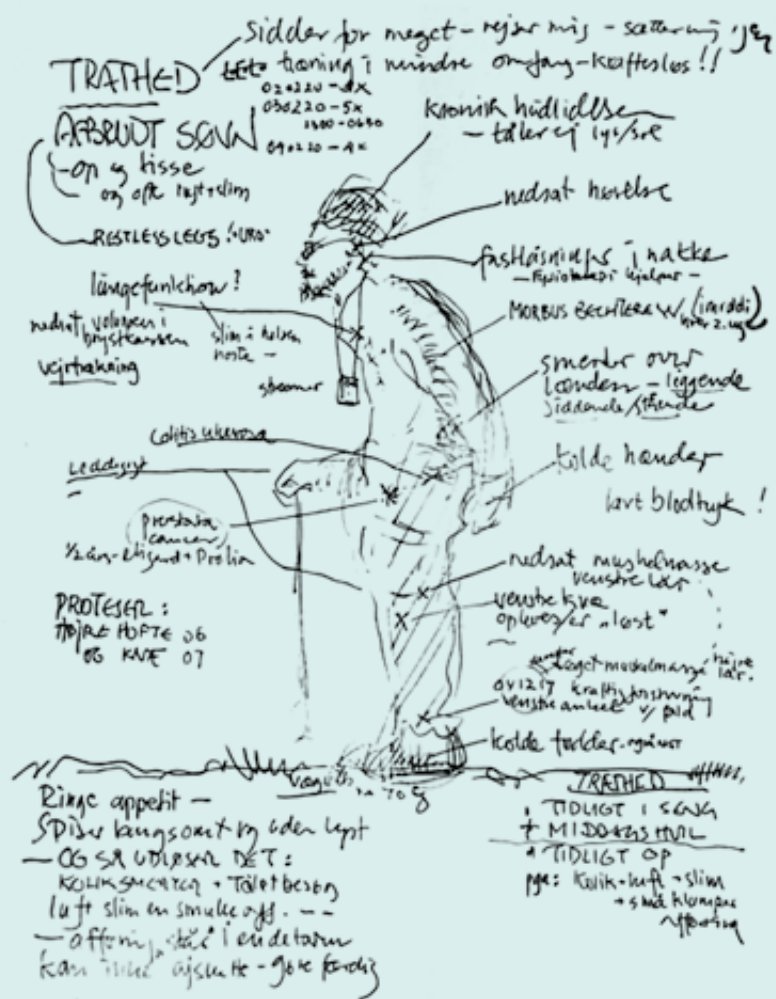 sidder for meget - rejser mig - sætter mig igen
TRÆTHED
LET træning i mindre omfang - kræftesløs!!
020220 - 4x
030220 - 5x
2300-0630
040220 - 4x
AFBRUDT SØVN
- op og tisse
og ofte luft + slim
RESTLESS LEGS
kronisk hudlidelse
- tåler ej lys/sol
nedsat hørelse
fastlåsninger i nakke
hjælper -
MORBUS BECHTEREW
hver 2. ug
lungefunktion?
nedsat volumen i
brystkassen
vejrtrækning
slim i halsen
hoste -
smerter over
lænden - liggende
siddende/stående
colitis ulcerosa
Leddegigt
kolde hænder
lavt blodtryk !
prostata
cancer
+ Prolia
nedsat muskelmasse
venstre lår
venstre knæ
opleves/er "løst"
PROTESER:
HØJRE HOFTE 06
OG KNÆ 07
meget muskelmasse højre
lår.
041217 kraftig forstuvning
venstre ankel v/ fald
kolde fødder
70 kg
Ringe appetit -
SPISER langsomt og uden lyst
- OG SÅ UDLØSER DET:
KOLIKSMERTER + Toiletbesøg
luft slim en smule aff. - -
- afføring står i endetarm
kan ikke - gøre færdig
TRÆTHED
TIDLIGT I SENG
+ MIDDAGSHVIL
TIDLIGT OP
pga: Kolik + luft + slim
+ små klumper
afføring